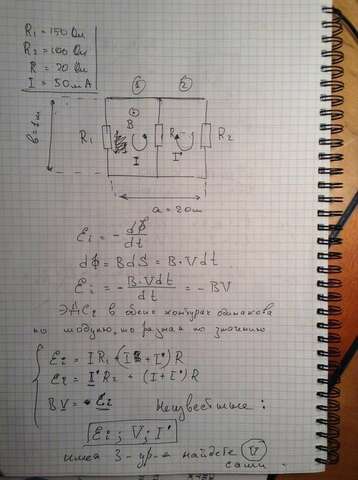 R₁ = 150 Ом
R₂ = 100 Ом
R = 20 Ом
I = 50 мА
① ②
B
R₁ R R₂
I I'
a = 20м
Ɛi = - dФ/dt
dФ = BdS = B·Vdt
Ɛi = - B·Vdt/dt = - BV
ЭДСi в обеих контурах одинакова
по модулю, но разная по значению
Ɛi = IR₁ + (I + I')R
Ɛi = I'R₂ + (I + I')R
BV = Ɛi Неизвестные:
Ɛi; V; I'
имея 3-ур-я найдете V
сами.